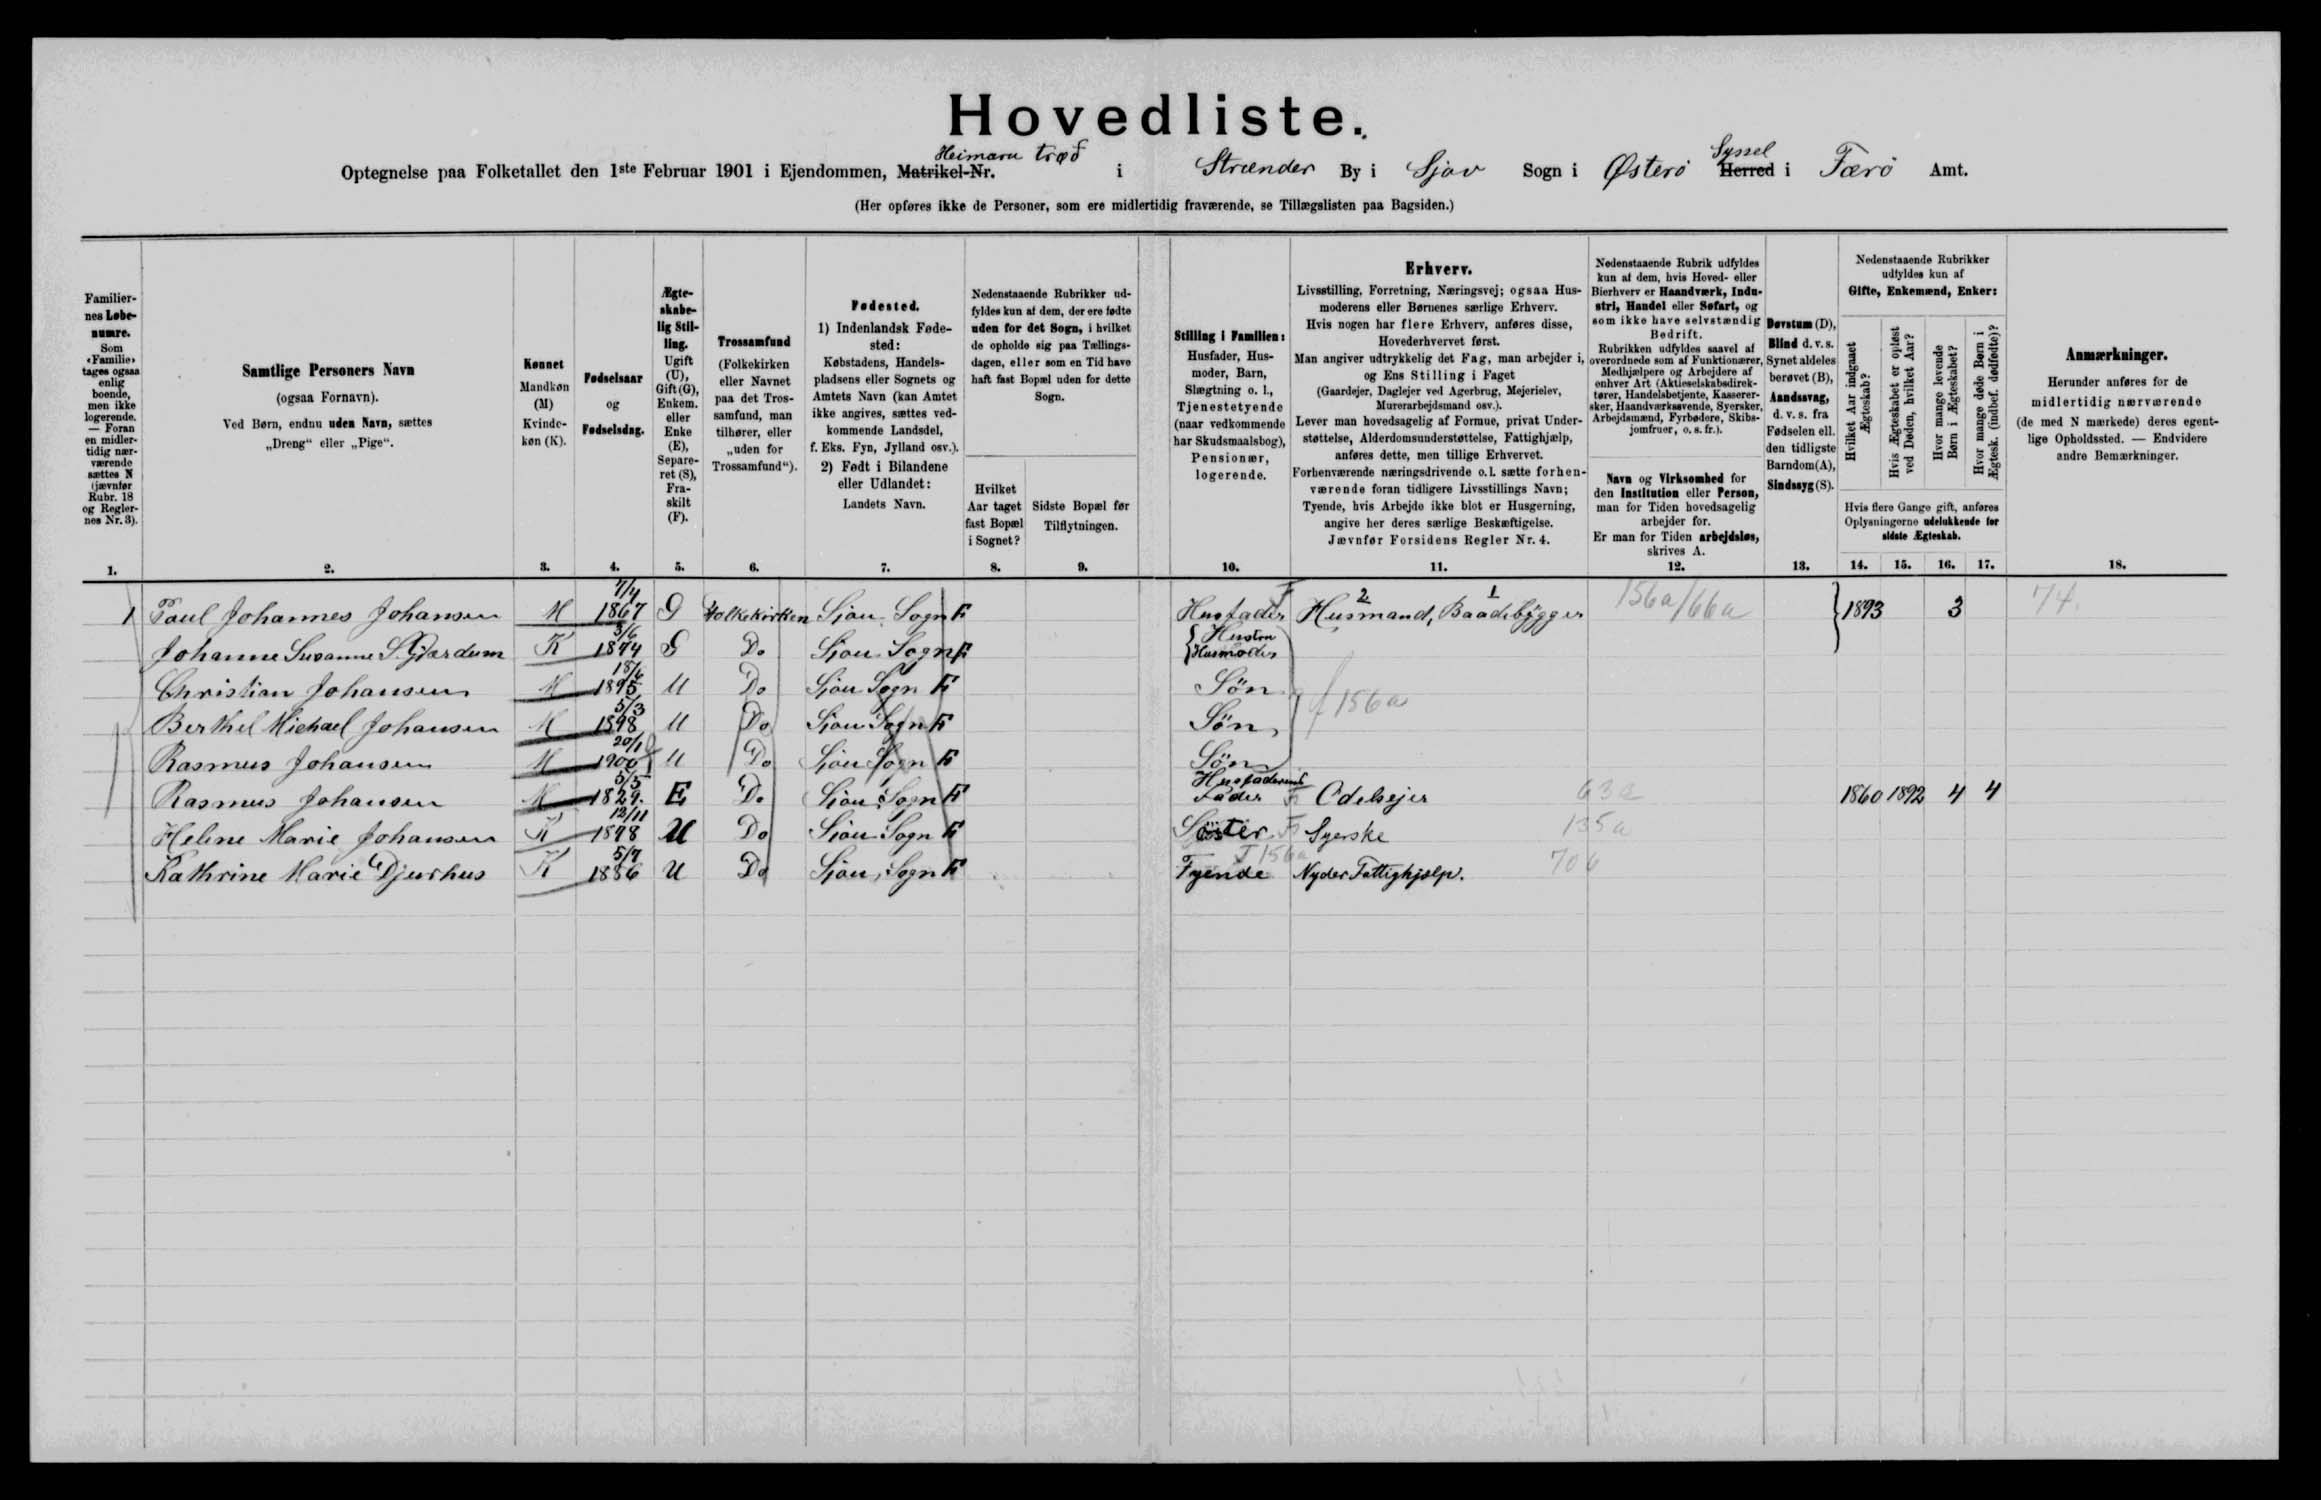 Hovedliste.
Heimara trød
Syssel
Optegnelse paa Folketallet den 1ste Februar 1901 i Ejendommen, Matrikel-Nr. i Strænder By i Sjov Sogn i Østerö Herred i Færö Amt.
(Her opføres ikke de Personer, som ere midlertidig fraværende, se Tillægslisten paa Bagsiden.)
Familier-
nes Løbe-
numre.
Som
«Familie»
tages ogsaa
enlig
boende,
men ikke
logerende.
— Foran
en midler-
tidig nær-
værende
sættes N
(jævnfør
Rubr. 18
og Regler-
nes Nr. 3).
1.
Samtlige Personers Navn
(ogsaa Fornavn).
Ved Børn, endnu uden Navn, sættes
„Dreng“ eller „Pige“.
2.
Kønnet
Mandkøn
(M)
Kvinde-
køn (K).
3.
Fødselsaar
og
Fødselsdag.
4.
Ægte-
skabe-
lig Stil-
ling.
Ugift
(U),
Gift (G),
Enkem.
eller
Enke
(E),
Separe-
ret (S),
Fra-
skilt
(F).
5.
Trossamfund
(Folkekirken
eller Navnet
paa det Tros-
samfund, man
tilhører, eller
„uden for
Trossamfund“).
6.
Fødested.
1) Indenlandsk Føde-
sted:
Købstadens, Handels-
pladsens eller Sognets og
Amtets Navn (kan Amtet
ikke angives, sættes ved-
kommende Landsdel,
f. Eks. Fyn, Jylland osv.).
2) Født i Bilandene
eller Udlandet:
Landets Navn.
7.
Nedenstaaende Rubrikker ud-
fyldes kun af dem, der ere fødte
uden for det Sogn, i hvilket
de opholde sig paa Tællings-
dagen, eller som en Tid have
haft fast Bopæl uden for dette
Sogn.
Hvilket
Aar taget
fast Bopæl
i Sognet?
8.
Sidste Bopæl før
Tilflytningen.
9.
Stilling i Familien:
Husfader, Hus-
moder, Barn,
Slægtning o. l.,
Tjenestetyende
(naar vedkommende
har Skudsmaalsbog),
Pensionær,
logerende.
10.
Erhverv.
Livsstilling, Forretning, Næringsvej; ogsaa Hus-
moderens eller Børnenes særlige Erhverv.
Hvis nogen har flere Erhverv, anføres disse,
Hovederhvervet først.
Man angiver udtrykkelig det Fag, man arbejder i,
og Ens Stilling i Faget
(Gaardejer, Daglejer ved Agerbrug, Mejerielev,
Murerarbejdsmand osv.).
Lever man hovedsagelig af Formue, privat Under-
støttelse, Alderdomsunderstøttelse, Fattighjælp,
anføres dette, men tillige Erhvervet.
Forhenværende næringsdrivende o. l. sætte forhen-
værende foran tidligere Livsstillings Navn;
Tyende, hvis Arbejde ikke blot er Husgerning,
angive her deres særlige Beskæftigelse.
Jævnfør Forsidens Regler Nr. 4.
11.
Nedenstaaende Rubrik udfyldes
kun af dem, hvis Hoved- eller
Bierhverv er Haandværk, Indu-
stri, Handel eller Søfart, og
som ikke have selvstændig
Bedrift.
Rubrikken udfyldes saavel af
overordnede som af Funktionærer,
Medhjælpere og Arbejdere af
enhver Art (Aktieselskabsdirek-
tører, Handelsbetjente, Kasserer-
sker, Haandværkssvende, Syersker,
Arbejdsmænd, Fyrbødere, Skibs-
jomfruer, o. s. fr.).
Navn og Virksomhed for
den Institution eller Person,
man for Tiden hovedsagelig
arbejder for.
Er man for Tiden arbejdsløs,
skrives A.
12.
Døvstum (D),
Blind d. v. s.
Synet aldeles
berøvet (B),
Aandssvag,
d. v. s. fra
Fødselen ell.
den tidligste
Barndom (A),
Sindssyg (S).
13.
Nedenstaaende Rubrikker
udfyldes kun af
Gifte, Enkemænd, Enker:
Hvilket Aar indgaaet
Ægteskab?
Hvis Ægteskabet er opløst
ved Døden, hvilket Aar?
Hvor mange levende
Børn i Ægteskabet?
Hvor mange døde Børn i
Ægtesk. (indbef. dødfødte)?
Hvis flere Gange gift, anføres
Oplysningerne udelukkende for
sidste Ægteskab.
14. 15. 16. 17.
Anmærkninger.
Herunder anføres for de
midlertidig nærværende
(de med N mærkede) deres egent-
lige Opholdssted. — Endvidere
andre Bemærkninger.
18.
1 Poul Johannes Johansen M 7/4 1867 G Folkekirken Sjov Sogn F Husfader F 2 1 Husmand, Baadebygger 156a/66a 1893 3 74.
Johanne Susanne S. Gjærdum K 3/6 1874 G Do Sjov Sogn F Hustru Husmoder
Christian Johansen M 18/6 1895 U Do Sjov Sogn F Sön
Berthel Michael Johansen M 5/3 1898 U Do Sjov Sogn F Sön f 156a
Rasmus Johansen M 20/1 1900 U Do Sjov Sogn F Sön
Rasmus Johansen M 5/5 1829. E Do Sjov Sogn F Husfaderens Fader F Odelsejer 63a 1860 1892 4 4
Helene Marie Johansen K 12/11 1878 U Do Sjov Sogn F Söster F Syerske 135a
Kathrine Marie Djurhus K 5/7 1886 U Do Sjov Sogn F Tyende T 156a Nyder Fattighjælp. 706